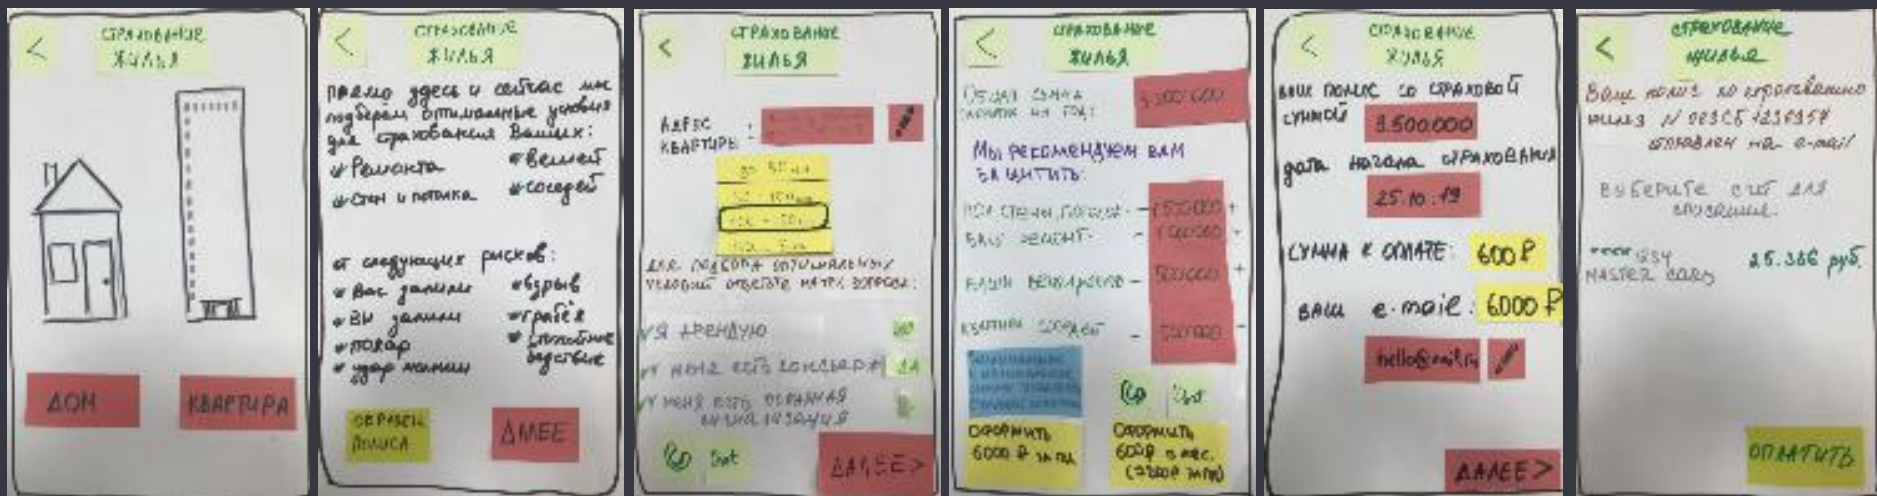 <
СТРАХОВАНИЕ
ЖИЛЬЯ
ДОМ
КВАРТИРА
<
СТРАХОВАНИЕ
ЖИЛЬЯ
прямо здесь и сейчас мы
подберём оптимальные условия
для страхования Ваших:
Ремонта
вещей
Стен и потолка
соседей
от следующих рисков:
Вас залили
взрыв
Вы залили
грабёж
пожар
стихийные
бедствие
удар молнии
ОБРАЗЕЦ
ПОЛИСА
ДАЛЕЕ
<
СТРАХОВАНИЕ
ЖИЛЬЯ
АДРЕС
КВАРТИРЫ
ДЛЯ ПОДБОРА ОПТИМАЛЬНЫХ
УСЛОВИЙ ОТВЕТЬТЕ НА ВОПРОСЫ:
Я АРЕНДУЮ
У МЕНЯ ЕСТЬ КОНСЬЕРЖ
ДА
У МЕНЯ ЕСТЬ ОХРАННАЯ
СИГНАЛИЗАЦИЯ
ДАЛЕЕ>
<
СТРАХОВАНИЕ
ЖИЛЬЯ
ОБЩАЯ СУММА
НА ГОД:
МЫ РЕКОМЕНДУЕМ ВАМ
ЗАЩИТИТЬ:
ПОЛ, СТЕНЫ, ПОТОЛОК - +
ВАШ РЕМОНТ -
500.000 +
КВАРТИРЫ СОСЕДЕЙ - 500.000
ОФОРМИТЬ
6000 ₽ ЗА ГОД
ОФОРМИТЬ
600₽ В МЕС.
(7200₽ ЗА ГОД)
<
СТРАХОВАНИЕ
ЖИЛЬЯ
ВАШ ПОЛИС СО СТРАХОВОЙ
СУММОЙ
3.500.000
ДАТА НАЧАЛА СТРАХОВАНИЯ
25.10.19
СУММА К ОПЛАТЕ: 600 ₽
ВАШ e-maie: 6000 ₽
hello@mail.ru
ДАЛЕЕ>
<
СТРАХОВАНИЕ
ЖИЛЬЯ
Ваш полис по страхованию
жилья N
отправлен на e-mail
ВЫБЕРИТЕ СЧЁТ ДЛЯ
СПИСАНИЯ.
MASTER CARD
25.386 руб.
ОПЛАТИТЬ